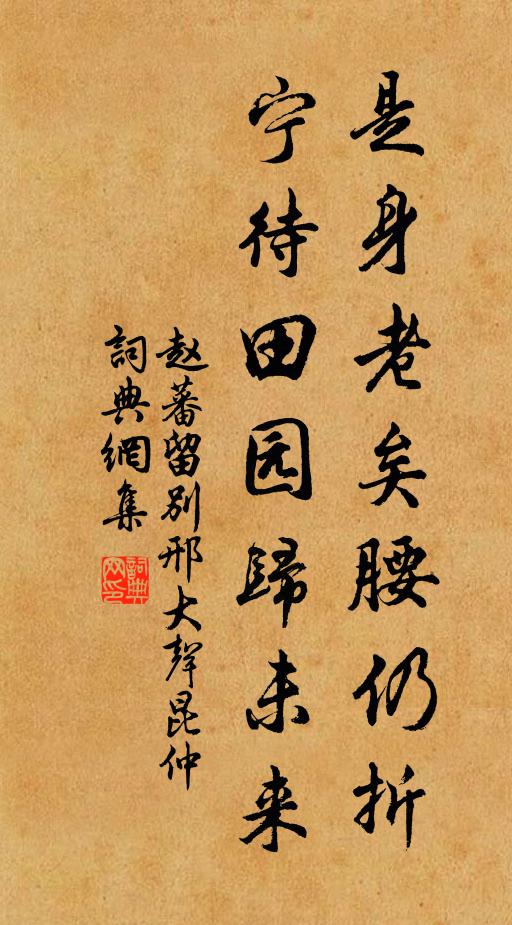 是身老矣腰仍折
宁待田园歸未来
赵蕃留别邢大聲昆仲
詞典網集
詞典网印